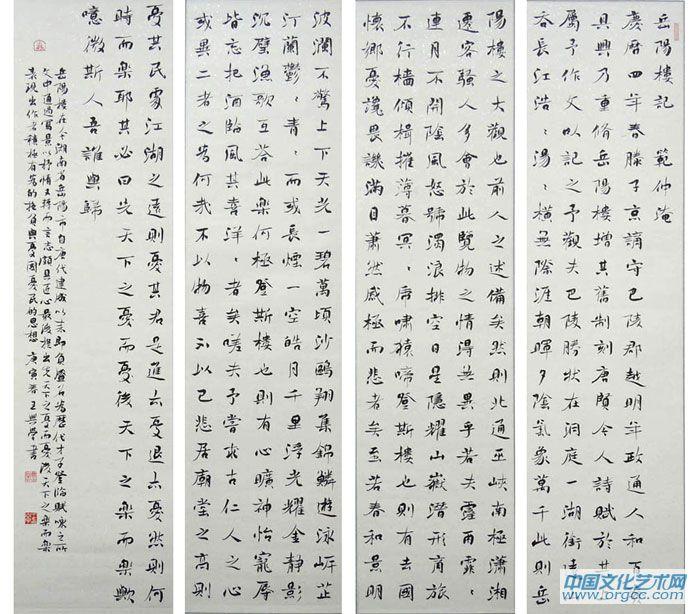 岳陽樓記 範仲淹
慶曆四年春滕子京謫守巴陵郡越明年政通人和百廢
具興乃重脩岳陽樓增其舊制刻唐賢今人詩賦於其上
屬予作文以記之予觀夫巴陵勝狀在洞庭一湖銜遠山
吞長江浩：湯：橫無際涯朝暉夕陰氣象萬千此則岳
陽樓之大觀也前人之述備矣然則北通巫峽南極瀟湘
遷客騷人多會於此覽物之情得無異乎若夫霪雨霏：
連月不開陰風怒號濁浪排空日星隱耀山嶽潛形商旅
不行檣傾楫摧薄暮冥：虎嘯猿啼登斯樓也則有去國
懷鄉憂讒畏譏滿目蕭然感極而悲者矣至若春和景明
波瀾不驚上下天光一碧萬頃沙鷗翔集錦鱗遊泳岸芷
汀蘭鬱：青：而或長煙一空皓月千里浮光耀金靜影
沉璧漁歌互答此樂何極登斯樓也則有心曠神怡寵辱
皆忘把酒臨風其喜洋：者矣嗟夫予嘗求古仁人之心
或異二者之為何哉不以物喜不以己悲居廟堂之高則
憂其民處江湖之遠則憂其君是進亦憂退亦憂然則何
時而樂耶其必曰先天下之憂而憂後天下之樂而樂歟
噫微斯人吾誰與歸
岳陽樓在今湖南省岳陽市自唐代建成以來即負盛名為歷代才子登臨賦咏之所
文中通過寫景以抒情又抒而言志頗具匠心最後提出先天下之憂而憂後天下之樂而樂
表現出作者積極有為的抱負與憂國憂民的思想 庚寅春王興學書
中国文化艺术网
www.orgcc.com